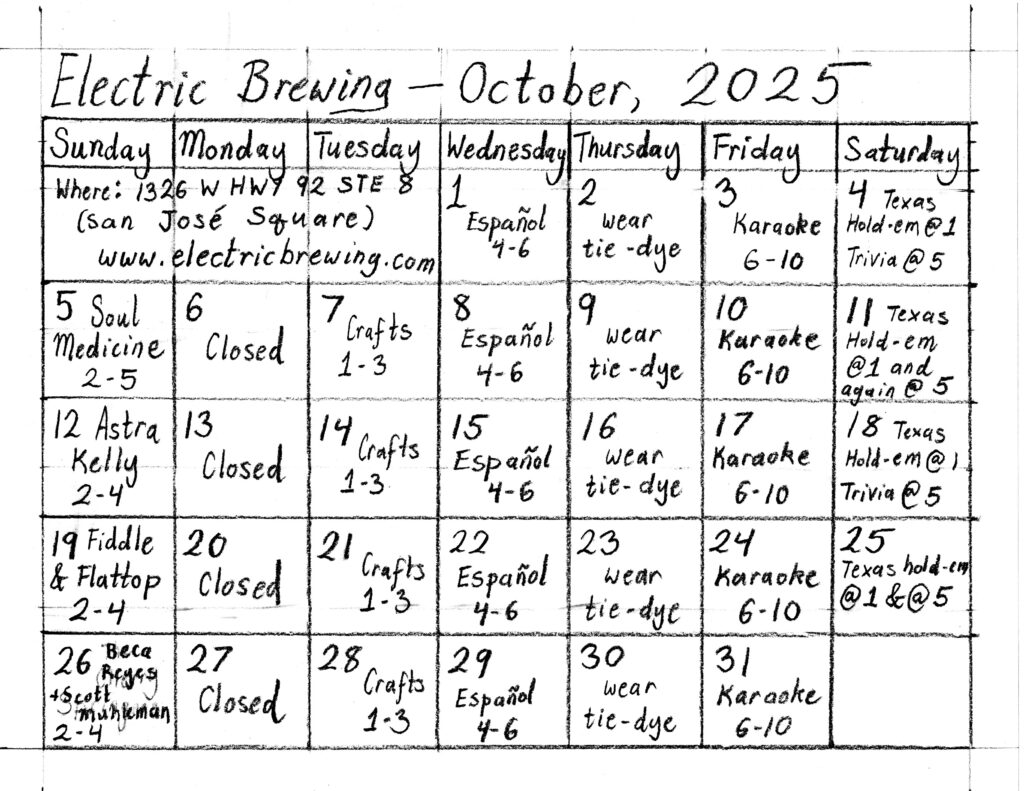 Electric Brewing — October, 2025
Sunday Monday Tuesday Wednesday Thursday Friday Saturday
Where: 1326 W HWY 92 STE 8
(San José Square)
www.electricbrewing.com
1
Español
4-6
2
wear
tie-dye
3
Karaoke
6-10
4 Texas
Hold-em @1
Trivia @ 5
5 Soul
Medicine
2-5
6
Closed
7
Crafts
1-3
8
Español
4-6
9
wear
tie-dye
10
Karaoke
6-10
11 Texas
Hold-em
@1 and
again @ 5
12 Astra
Kelly
2-4
13
Closed
14
Crafts
1-3
15
Español
4-6
16
wear
tie-dye
17
Karaoke
6-10
18 Texas
Hold-em @ 1
Trivia @ 5
19 Fiddle
& Flattop
2-4
20
Closed
21
Crafts
1-3
22
Español
4-6
23
wear
tie-dye
24
Karaoke
6-10
25
Texas hold-em
@1 & @ 5
26 Beca
Reyes
+Scott
Muhleman
2-4
27
Closed
28
Crafts
1-3
29
Español
4-6
30
wear
tie-dye
31
Karaoke
6-10